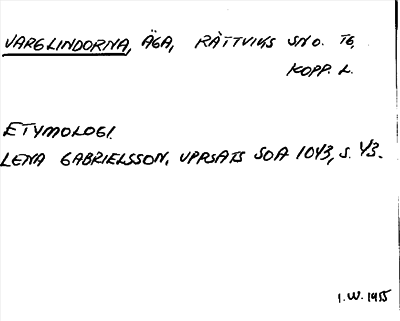 VARGLINDORNA, ÄGA, RÄTTVIKS SNO. TG,
KOPP. L.
ETYMOLOGI.
LENA GABRIELSSON. UPPSATS SOA 1043, S. 43.
I.W. 1955